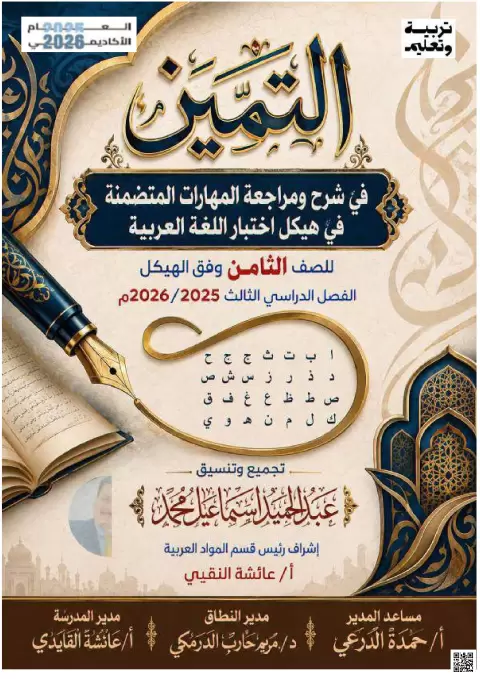 العام
الأكاديمي
2025
2026
تربية
وتعليم
التميّز
في شرح ومراجعة المهارات المتضمنة
في هيكل اختبار اللغة العربية
للصف الثامن وفق الهيكل
الفصل الدراسي الثالث 2025/2026م
ا ب ت ث ج ج ح
د ذ ر ز س ش ص
ص ط ظ ع غ ف ق
ك ل م ن ه و ي
تجميع وتنسيق
عبدالحميد إسماعيل محمد
إشراف رئيس قسم المواد العربية
أ/ عائشة النقبي
مساعد المدير
أ/ حمدة الدرعي
مدير النطاق
د/ مريم حارب الدرمكي
مدير المدرسة
أ/ عائشة القايدي